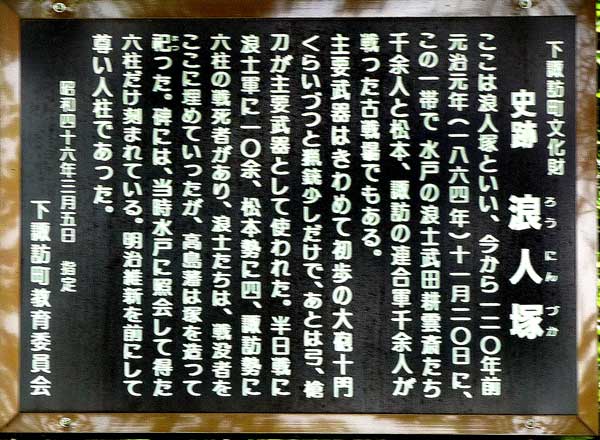 下諏訪町文化財
史跡 浪人塚
ろうにんづか
ここは浪人塚といい、今から一二〇年前
元治元年(一八六四年)十一月二〇日に、
この一帯で水戸の浪士武田耕雲斎たち
千余人と松本、諏訪の連合軍千余人が
戦った古戦場でもある。
主要武器はきわめて初歩の大砲十門
くらいづつと猟銃少しだけで、あとは弓、槍
刀が主要武器として使われた。半日戦に
浪士軍に一〇余、松本勢に四、諏訪勢に
六柱の戦死者があり、浪士たちは、戦没者を
ここに埋めていったが、高島藩は塚を造って
祀った。碑には、当時水戸に照会して得た
まつ
六柱だけ刻まれている。明治維新を前にして
尊い人柱であった。
昭和四十六年三月五日 指定
下諏訪町教育委員会